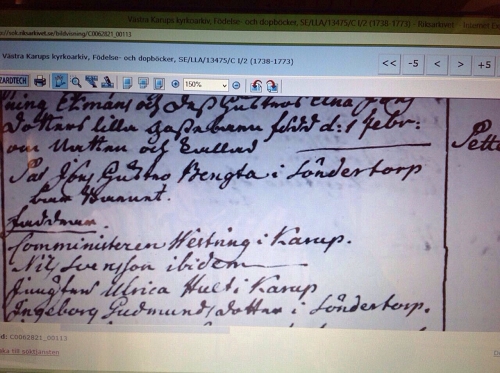 Västra Karups kyrkoarkiv, Födelse- och dopböcker, SE/LLA/13475/C I/2 (1738-1773) - Riksarkivet - Internet Ex
//sok.riksarkivet.se/bildvisning/C0062821_00113
Västra Karups kyrkoarkiv, Födelse- och dopböcker, SE/LLA/13475/C I/2 (1738-1773)
<< -5 < > +5
ZARDTECH 150%
och Deß Hustros Elna
Dotters lilla född d: 1 Febr:
om Natten och Kallad
Pär Jöns Hustro Bengta i Söndertorp
bar Barnet.
faddrar.
Comministeren Westring i Karup.
Nils Svensson ibidem
Jungfru Ulrica Hult i Karup
Ingeborg Gudmunds dotter i Söndertorp.
Pette
id: C0062821_00113
aka till söktjänsten